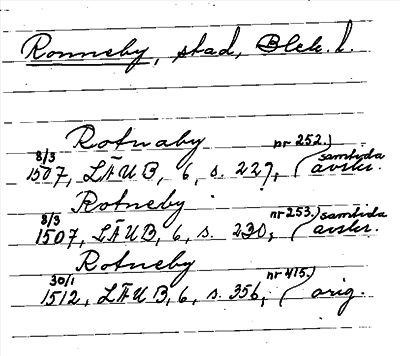 Ronneby, stad, Blek. l.
Rotnaby
8/3 1507, LÄUB, 6, s. 227, nr 252.) (samtida avskr.
Rotneby
8/3 1507, LÄUB, 6, s. 230, nr 253.) (samtida avskr.
Rotneby
30/1 1512, LÄUB, 6, s. 356, nr 415.) (orig.